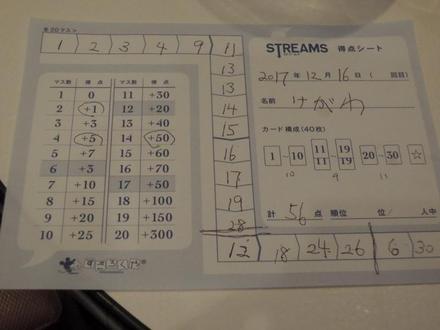 全20マス
1 2 3 4 9 11
13
13
14
15
16
17
19
28
12 18 24 26 6 30
マス数 得点 マス数 得点
1 0 11 +30
2 +1 12 +20
3 +3 13 +40
4 +5 14 +50
5 +7 15 +60
6 +3 16 +70
7 +10 17 +50
8 +15 18 +100
9 +20 19 +150
10 +25 20 +300
すごろくや
STREAMS 得点シート
2017年 12月 16日 ( 回目)
名前
カード構成(40枚)
1 ~ 10 11/11 ~ 19/19 20 ~ 30 ☆
10 9 11
計 56点 順位 位/ 人中